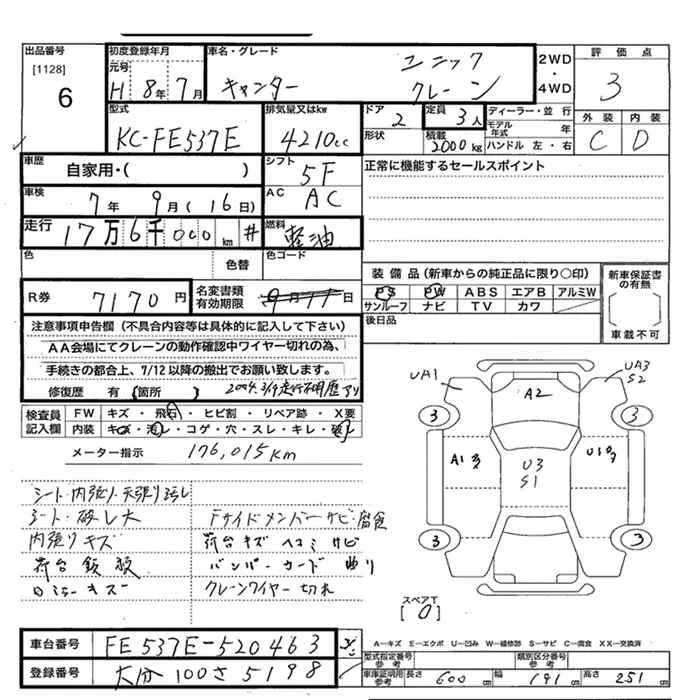 出品番号
[1128]
6
初度登録年月
元号
H 8年 7月
車名・グレード
ユニック
キャンター クレーン
2WD
・
4WD
評価点
3
外装 内装
C D
型式
KC-FE537E
排気量又はkw
4210cc
ドア
2
形状
定員
3人
積載
2000kg
ディーラー・並行
モデル年式 年
ハンドル 左・右
車歴
自家用・( )
シフト
5F
正常に機能するセールスポイント
車検
7年 9月 (16日)
AC
AC
走行
17万6千000km #
燃料
軽油
色
色替
色コード
装備品(新車からの純正品に限り○印)
PS PW ABS エアB アルミW
サンルーフ ナビ TV カワ
新車保証書の有無
車載不可
後日品
R券
7170円
名変書類有効期限
9月11日
注意事項申告欄(不具合内容等は具体的に記入して下さい)
AA会場にてクレーンの動作確認中ワイヤー切れの為、
手続きの都合上、7/12以降の搬出でお願い致します。
修復歴 有(箇所 ) 2004.3/19走行不明歴アリ
検査員記入欄
FW キズ・飛石・ヒビ割・リペア跡・X要
内装 キズ・汚レ・コゲ・穴・スレ・キレ・破レ
メーター指示 176,015km
シート・破レ大
Fサイドメンバーサビ・腐食
内張りキズ
荷台キズ ヘコミ サビ
バンパー・ガード 曲り
クレーンワイヤー切れ
UA1
UA3
S2
A2
3
3
A13
U3
S1
3
3
スペアT
[0]
A―キズ E―エクボ U―凹み W―補修跡 S―サビ C―腐食 XX―交換済
車台番号
FE537E-520463
登録番号
大分 100さ5198
型式指定番号参考
類別区分番号参考
車庫証明用参考
長さ 600cm
幅 191cm
高さ 251cm